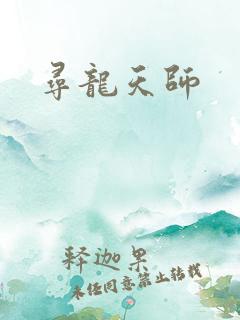 尋龍天師
释迦果
未经同意禁止转载